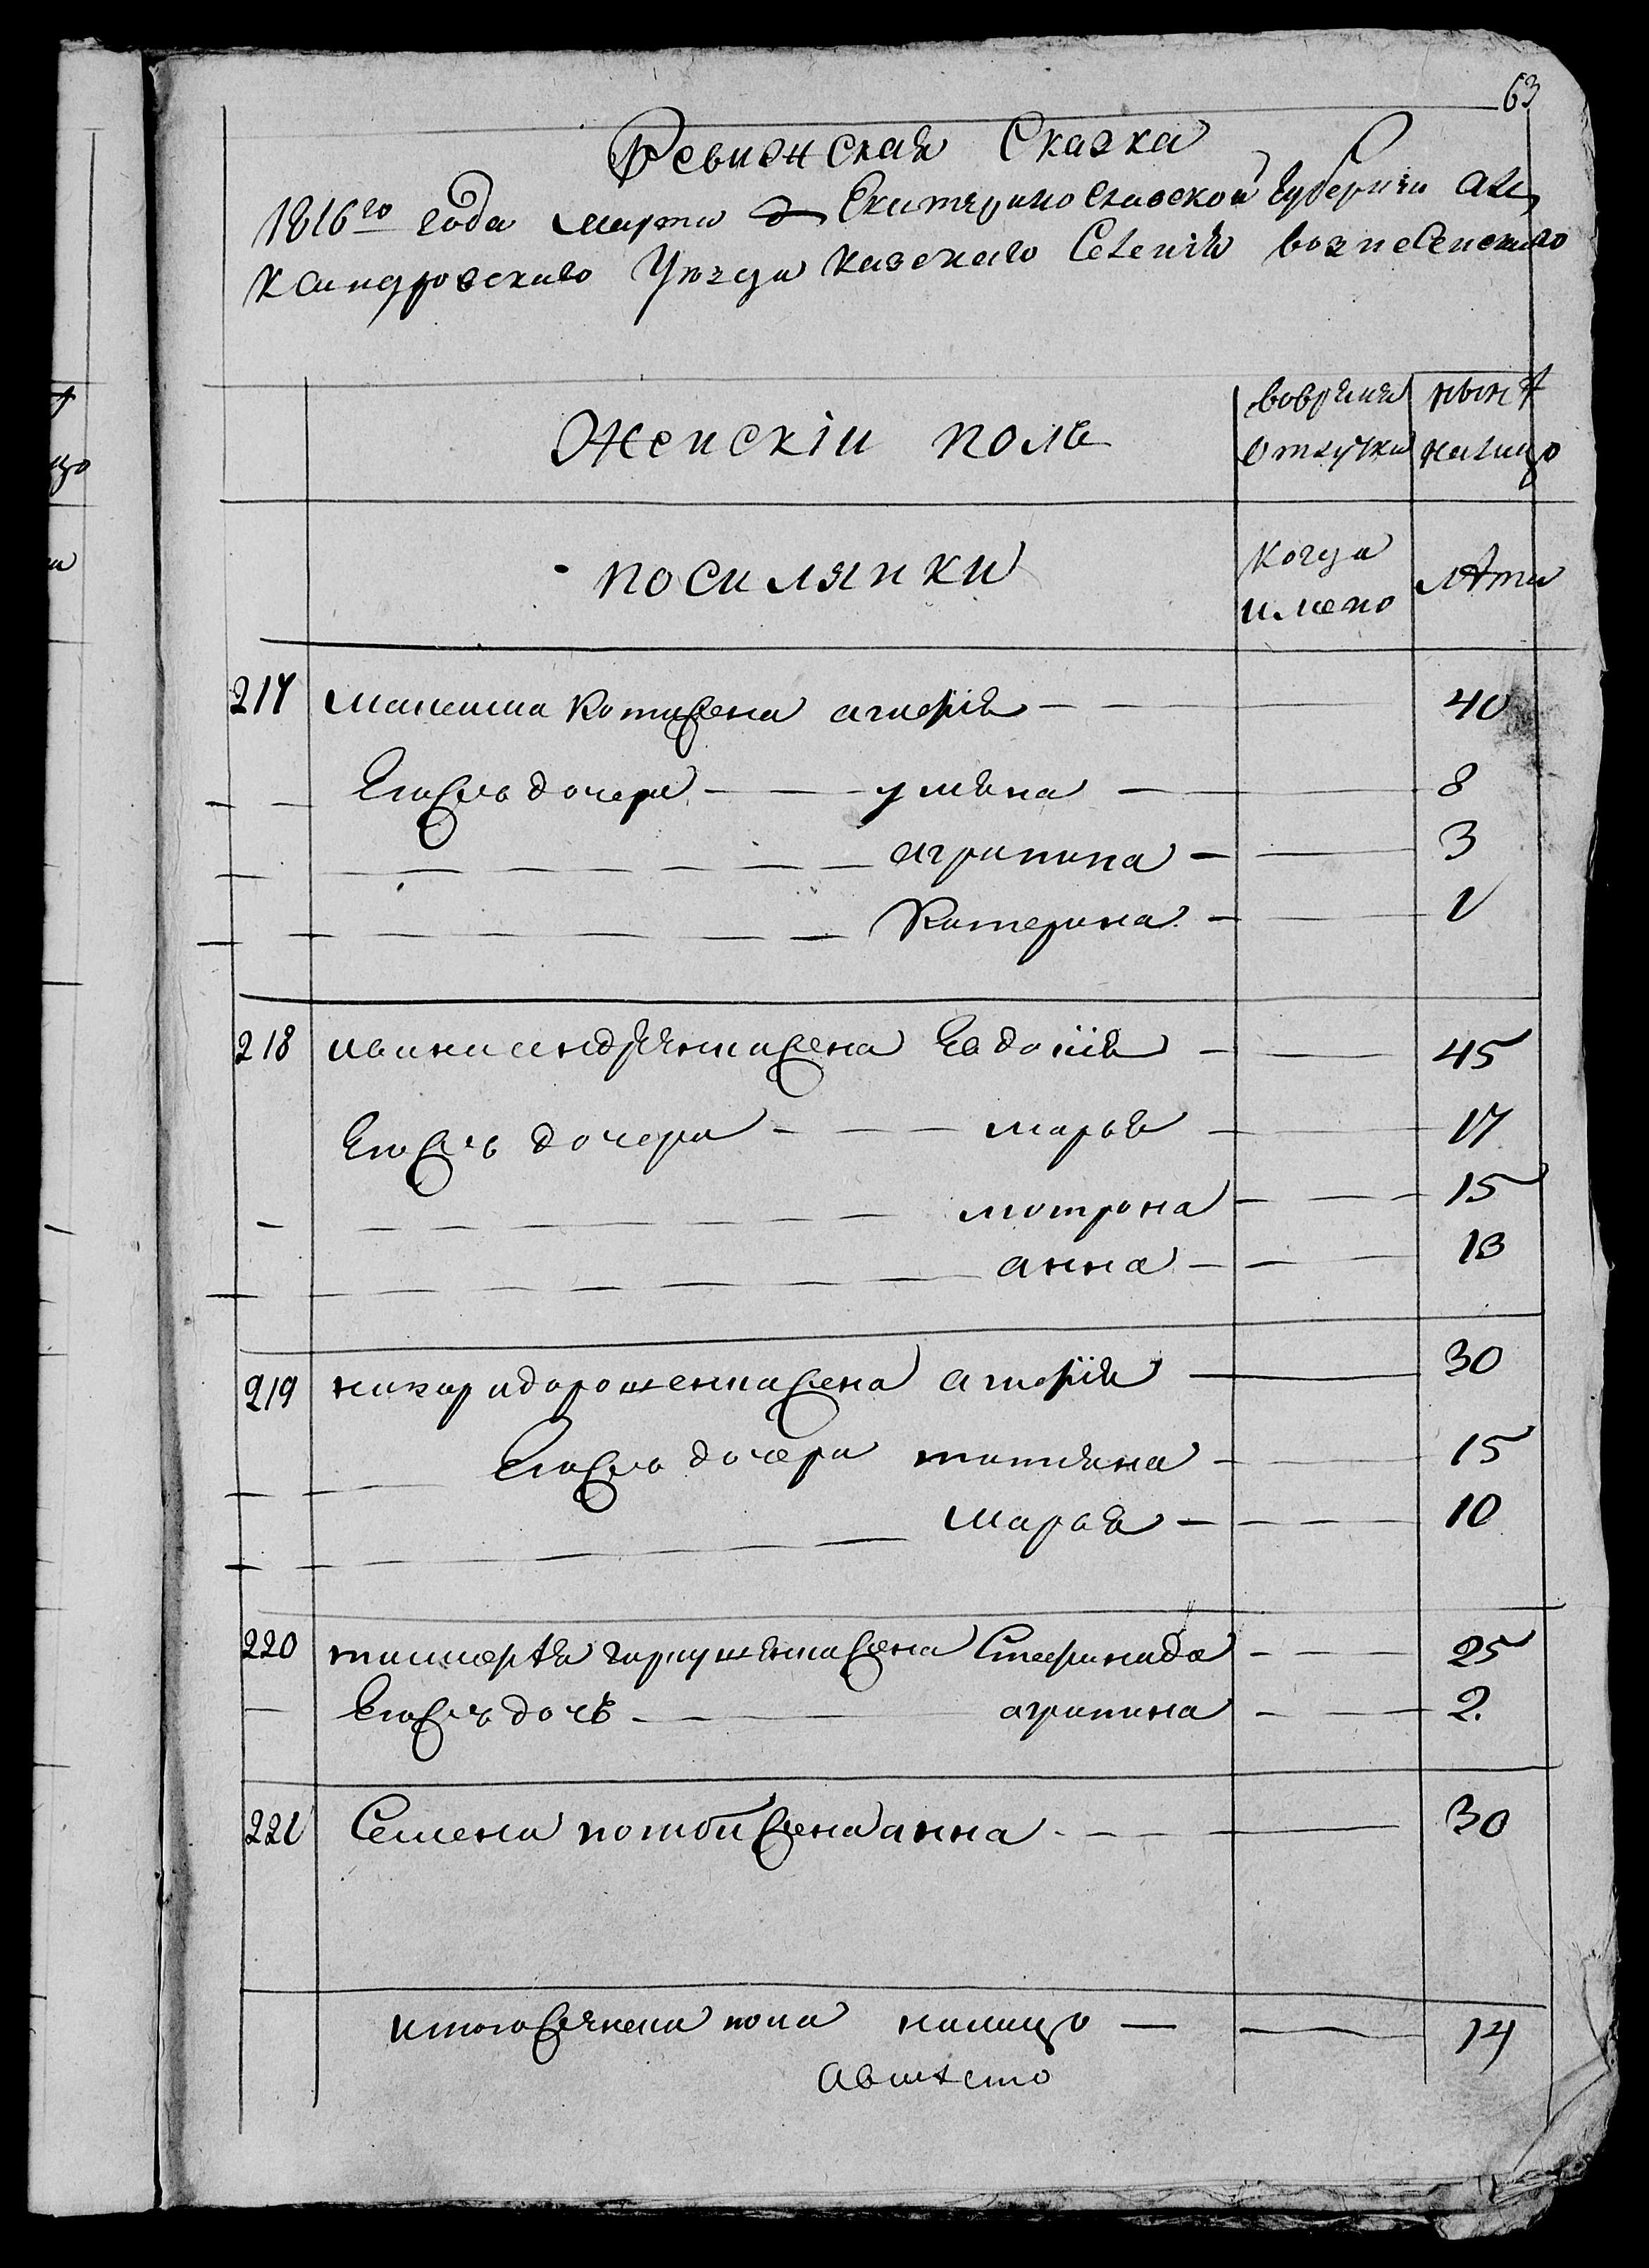 63
Ревизская Сказка
1816го года марта Екатериносласкои Губернии Але
ксандровскаго Уезда казенаго Селения вознесенскаго
Женскiи полъ
вовремя отлучки
нынѣ налицо
поселянки
когда имено
лѣта
217 максима кота жена агафiя 40
Его жъ дочери улияна 8
агрипина 3
Катерина 1
218 ивана андреянка жена Евдокiя 45
Его жъ дочери марья 17
мотрона 15
анна 13
219 никара дорошенка жена агафiя 30
Его жъ дочери татияна 15
Марья 10
220 тимофѣя гаркушенка жена Стефанида 25
Его жъ дочь агрипина 2.
221 Семена жена анна 30
итого женска пола налицо 14